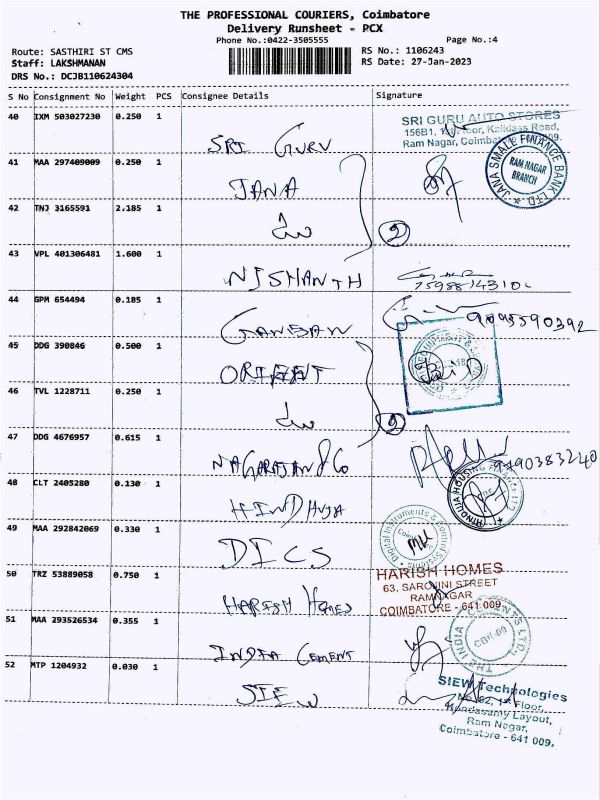 THE PROFESSIONAL COURIERS, Coimbatore
Delivery Runsheet - PCX
Phone No.:0422-3505555
Page No.:4
Route: SASTHIRI ST CMS
RS No.: 1106243
Staff: LAKSHMANAN
RS Date: 27-Jan-2023
DRS No.: DCJB110624304
S No Consignment No Weight PCS Consignee Details Signature
40 IXM 503027230 0.250 1 SRI GURU
SRI GURU AUTO STORES
156B1, Kalidass Road,
Ram Nagar, Coimbatore
41 MAA 297409009 0.250 1 JANA
JANA SMALL FINANCE BANK LTD
RAM NAGAR
BRANCH
42 TNJ 3165591 2.185 1
2
43 VPL 401306481 1.600 1 NISHANTH
44 GPM 654494 0.185 1 GANESAN
9095590392
45 DDG 390846 0.500 1 ORIENT
46 TVL 1228711 0.250 1
2
47 DDG 4676957 0.615 1 NAGARAJAN & Co
48 CLT 2405280 0.130 1 HINDHUJA
HINDUJA HOUSING FINANCE LTD
49 MAA 292842069 0.330 1 DICS
Digital Instruments & Control Systems
50 TRZ 53889058 0.750 1 HARISH HOMES
HARISH HOMES
63, SAROJINI STREET
RAMNAGAR
COIMBATORE - 641 009.
51 MAA 293526534 0.355 1 INDIA CEMENT
THE INDIA CEMENTS LTD.
CBE-09
52 MTP 1204932 0.030 1 SIEW
SIEW Technologies
Floor,
Kandasamy Layout,
Ram Nagar,
Coimbatore - 641 009.